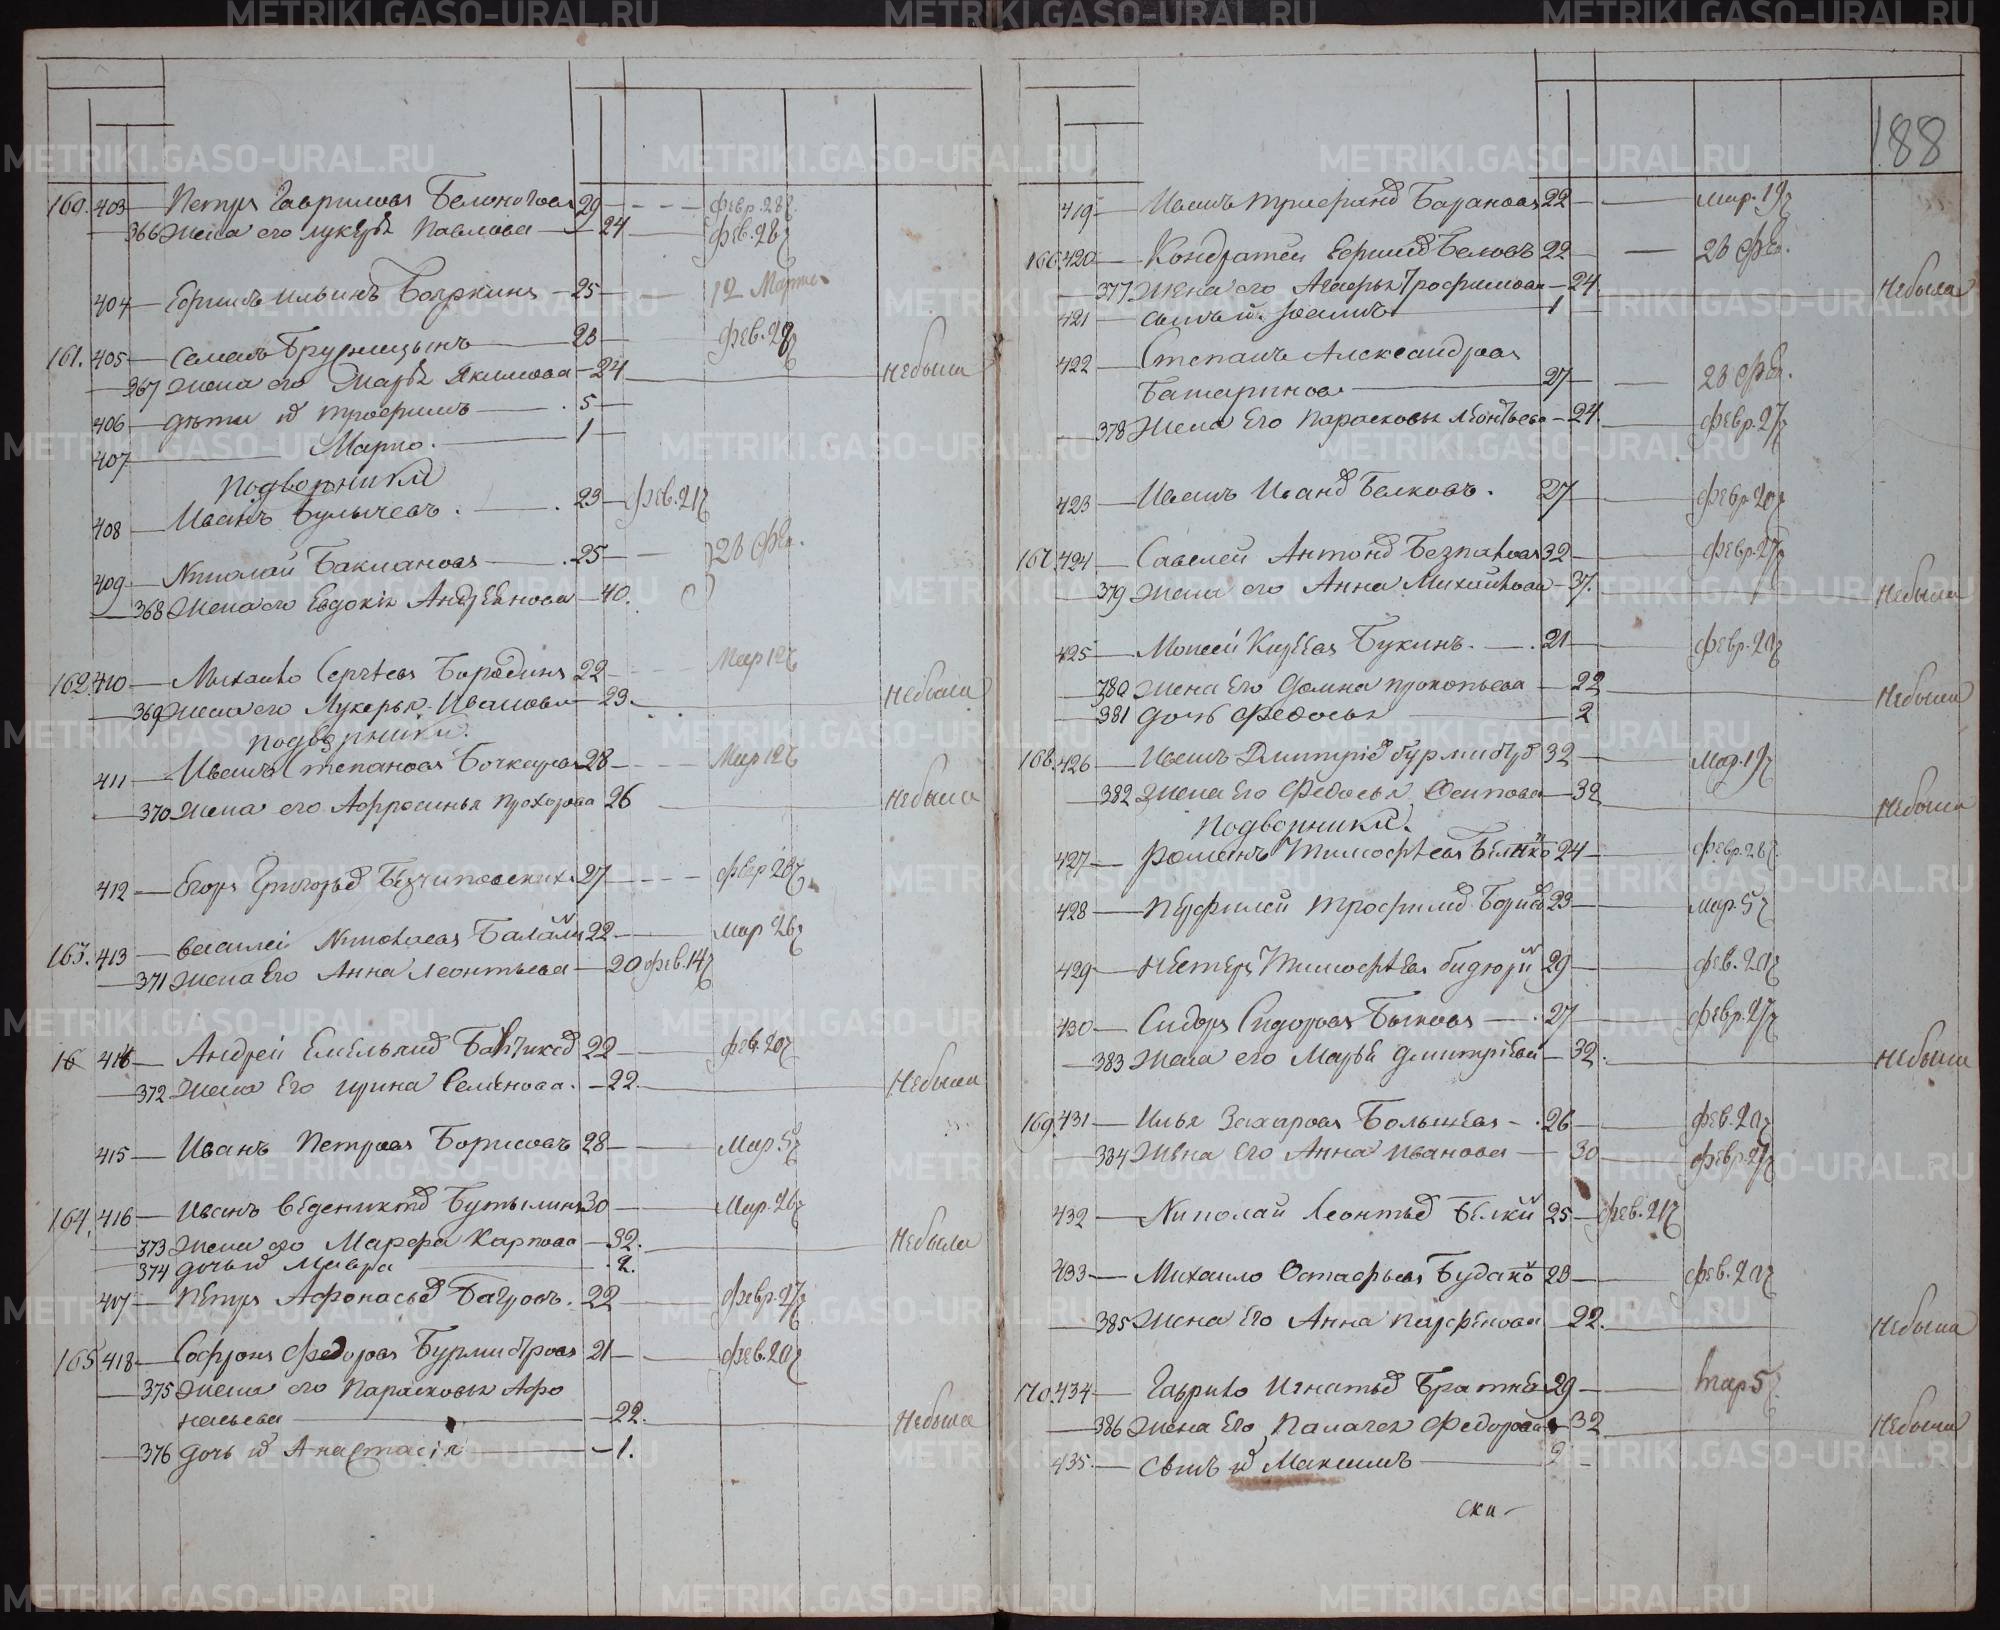 160. 403 — Петръ Гавриловъ Белоноговъ 29 — Февр. 28
366 Жена его Лукерья Павлова — 24 — Фев. 28
404 — Ефимъ Ильинъ Бояркинъ — 25 — 12 Марта
161. 405 — Семенъ Брусницынъ — 23 — Фев. 28
367 Жена его Марья Якимова — 24 — Небыла
406 — дѣти их Трофимъ — 5 —
407 — Марко. — 1 —
Подворники
408 — Иванъ Булычевъ. — 23 — Фев. 21
409 — Николай Баклановъ — 25 — 28 Фев.
368 Жена его Евдокія Андреянова — 40.
162. 410 — Михайло Сергѣевъ Бородинъ 22 — Мар 12
369 Жена его Лукерья Иванова — 23. — Небыла
подворники.
411 — Иванъ Степановъ Бочкаревъ 28 — Мар 12
370 Жена его Афросинья Прохорова 26 — Небыла
412 — Егоръ Григорьев 27 — Февр 20
163. 413 — Василей Николаевъ 22 — Мар 26
371 Жена Его Анна Леонтьева — 20 Фев. 14
414 — Андрей Емельянов 22 — Фев. 20
372 Жена Его Ирина Семенова. — 22. — Небыла
415 — Иванъ Петровъ Борисовъ 28 — Мар. 5
164. 416 — Иванъ Веденикто Бутылинъ 30 — Мар. 26
373 Жена его Марфа Карпова — 32. — Небыла
374 дочь их Мавра — 2.
417 — Петръ Афонасьев Багровъ. 22 — Февр. 27
165 418 — Софронъ Федоровъ Бурмистровъ 21 — Фев. 20
375 Жена его Парасковья Афо
насьева — 22. — Небыла
376 дочь их Анастасія — 1.
188
419 — Иванъ Трифанов Барановъ 22 — Мар. 19
166. 420 — Кондратей Ефимов Беловъ 22 — 28 Фев.
377 Жена его Агафья Трофимова — 24 — Небыла
421 — сынъ их Иванъ — 1 —
422 — Степанъ Александровъ
Батаринов — 27 — 28 Фев.
378 Жена Его Парасковья Леонтьева — 24. — Февр. 27
423 — Иванъ Иванов Белковъ. 27 — Февр. 20
167. 424 — Савелей Антонов 32 — Февр. 27
379 Жена его Анна Михайлова — 37. — Небыла
425 — Моисей Букинъ. — 21 — Февр. 20
380 Жена Его Домна Прокопьева — 22 — Небыла
381 дочь Федосья — 2
168. 426 — Иванъ Дмитріев 32 — Мар. 19
382 Жена Его Федосья Осипова — 32 — Небыла
Подворники.
427 — Романъ Тимофѣевъ 24 — Февр. 28
428 — Перфилей Трофимов Борисо 23 — Мар. 5
429 — Нестеръ Тимофѣевъ 29 — Фев. 20
430 — Сидоръ Сидоровъ Быковъ — 27 — Февр. 27
383 Жена его Марья Дмитріева — 32. — Небыла
169. 431 — Илья Захаровъ — 26 — Фев. 20
384 Жена Его Анна Иванова — 30 — Февр. 27
432 — Николай Леонтьев 25 — Фев. 21
433 — Михайло Остафьевъ Будако 23 — Фев. 20
385 Жена Его Анна Парфенова — 22. — Небыла
170. 434 — Гаврило Игнатьев 29 — Мар 5
386 Жена Его Палагея Федорова 32 — Небыла
435. — сынъ их Максимъ — 2 —
ска —
METRIKI.GASO-URAL.RU